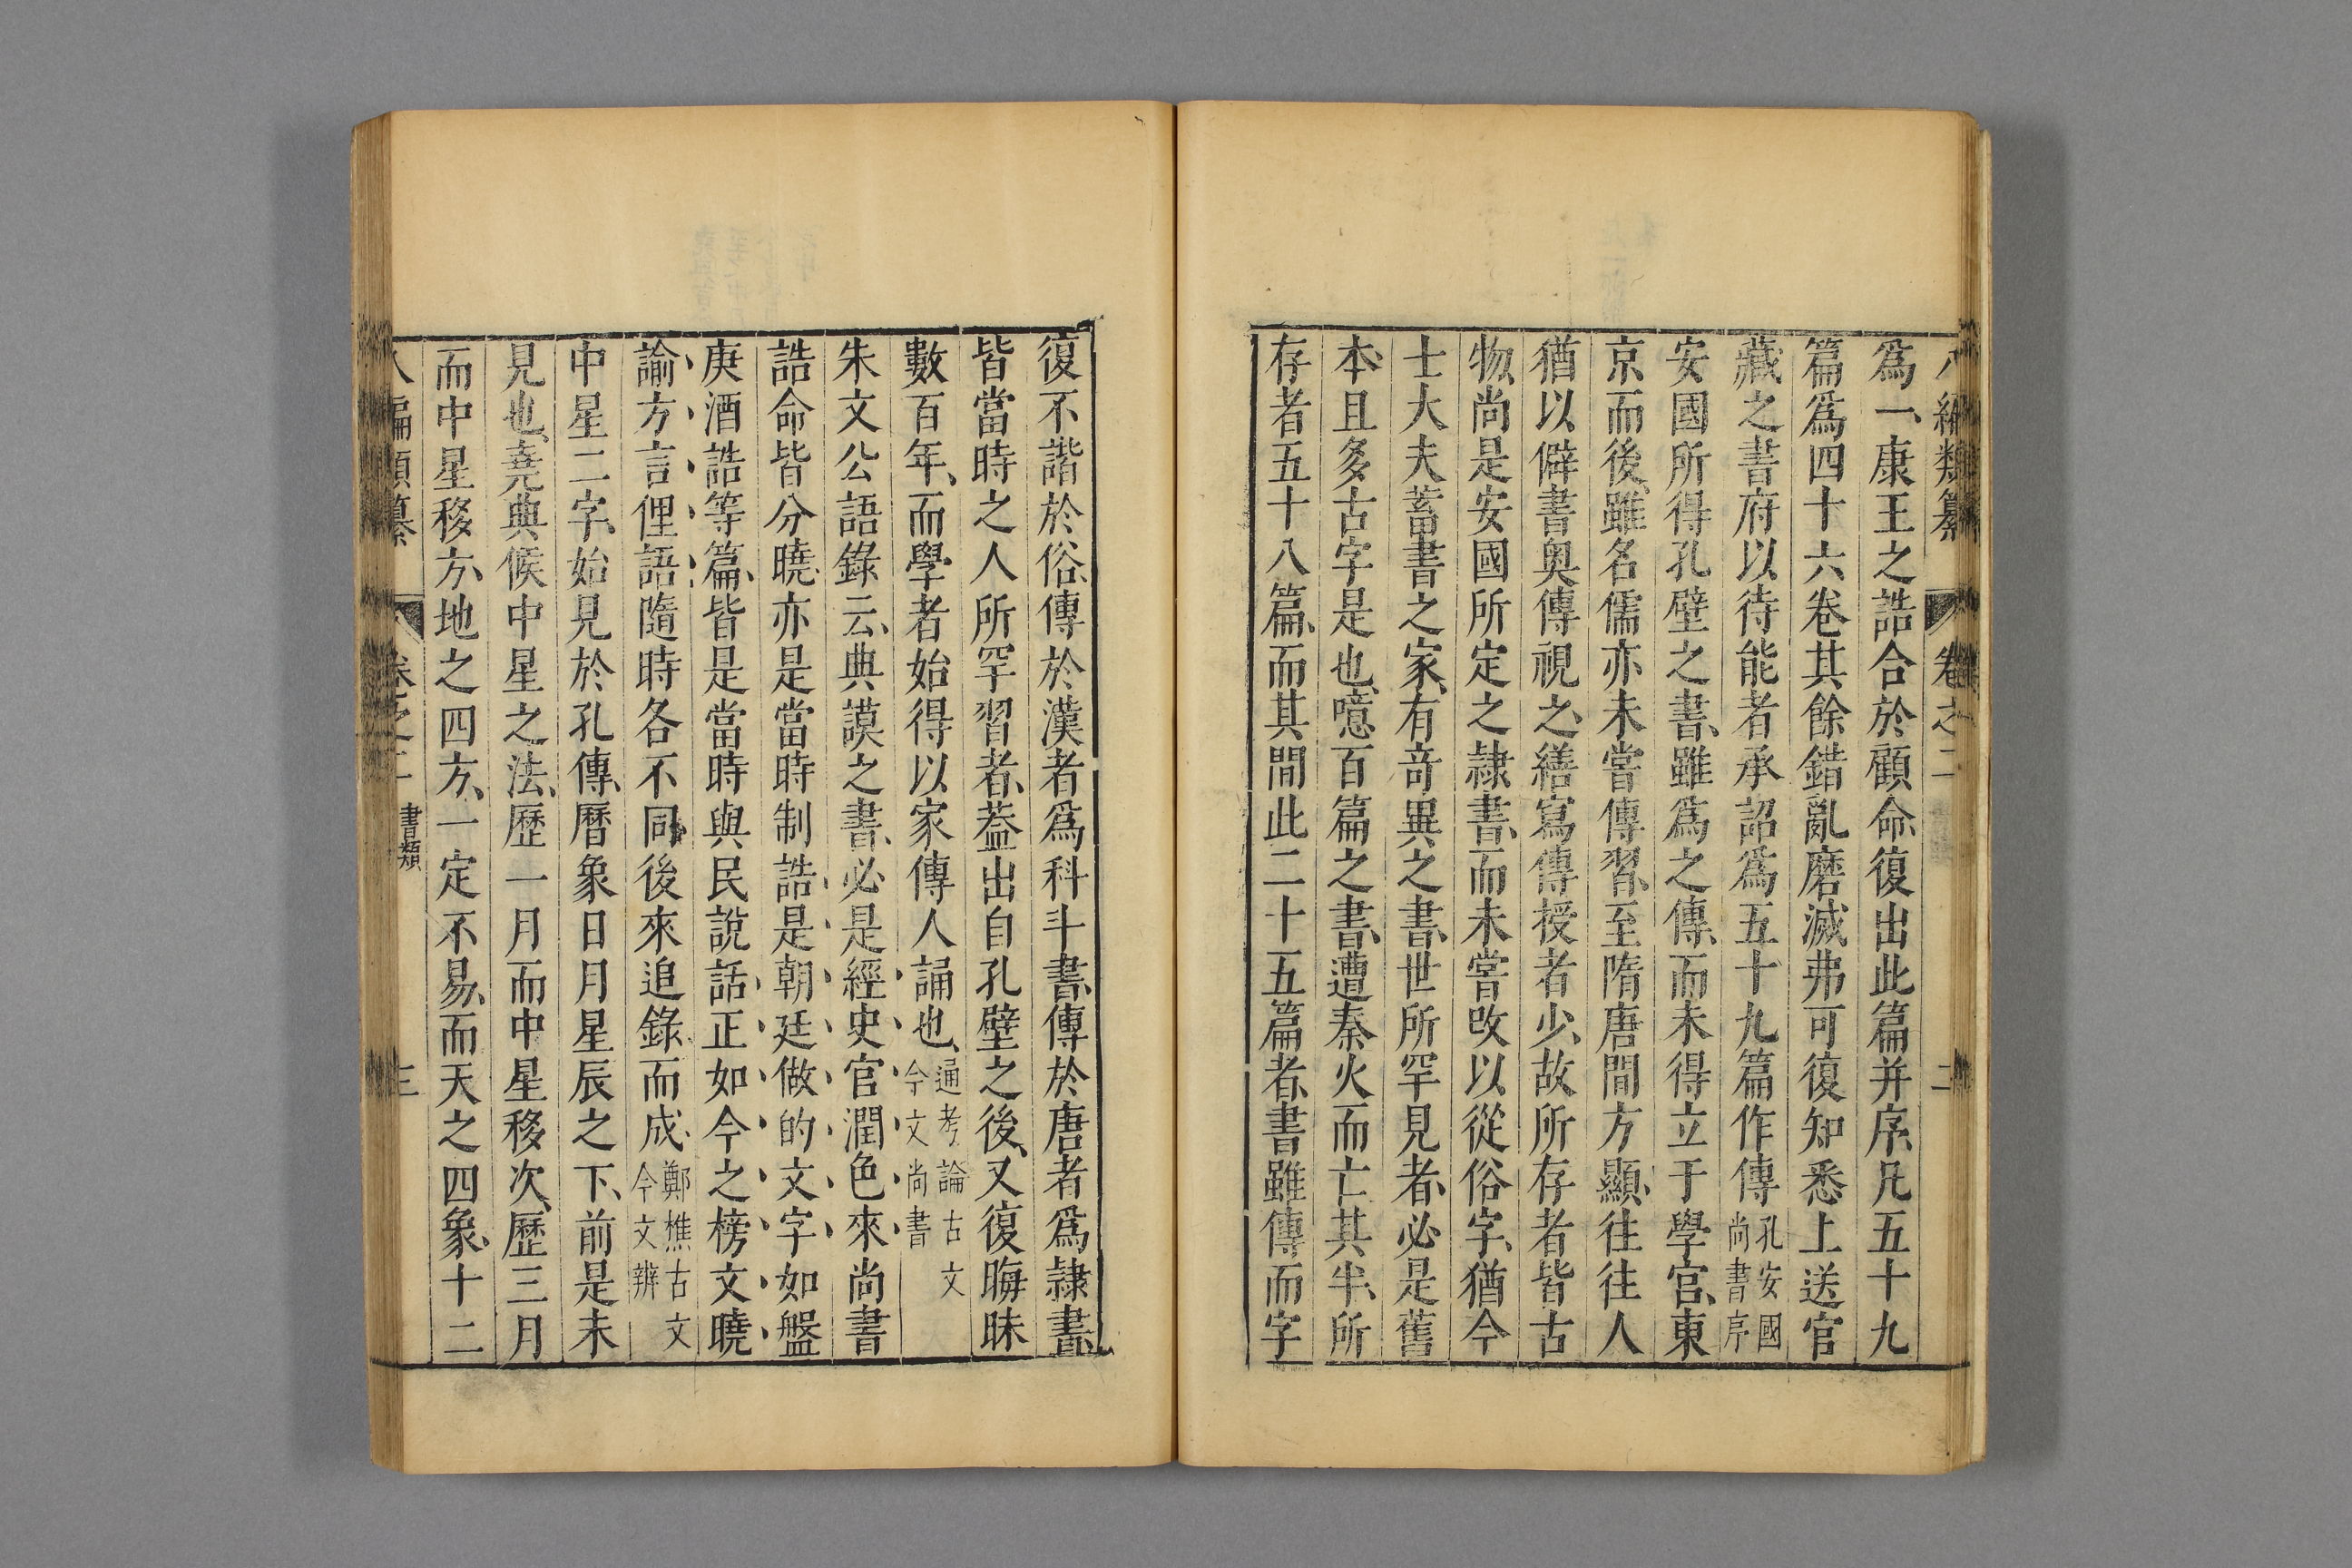 八編類纂 卷之二 二
爲一、康王之誥合於顧命、復出此篇并序、凡五十九
篇爲四十六卷其餘錯亂磨滅弗可復知悉上送官
藏之書府以待能者承詔爲五十九篇作傳孔安國尚書序
安國所得孔壁之書、雖爲之傳、而未得立于學官、東
京而後、雖名儒亦未嘗傳習、至隋唐間方顯、往往人
猶以僻書奥傳視之、繕寫傳授者少、故所存者皆古
物、尚是安國所定之隷書、而未嘗改以從俗字、猶今
士大夫蓄書之家、有竒異之書、世所罕見者、必是舊
本、且多古字是也、噫、百篇之書、遭秦火而亡其半、所
存者五十八篇、而其間此二十五篇者、書雖傳而字
復不諧於俗、傳於漢者爲科斗書、傳於唐者爲隷書、
皆當時之人所罕習者、葢出自孔壁之後、又復晦昧
數百年、而學者始得以家傳人誦也、通考論古文今文尚書
朱文公語錄云、典謨之書、必是經史官潤色來尚書
誥命皆分曉、亦是當時制誥、是朝廷做的文字如盤
庚酒誥等篇、皆是當時與民說話、正如今之榜文曉
諭、方言俚語、隨時各不同、後來追錄而成、鄭樵古文今文辨
中星二字、始見於孔傳、曆象日月星辰之下、前是未
見也、堯典候中星之法、歷一月而中星移次、歷三月
而中星移方、地之四方、一定不易、而天之四象、十二
八編類纂 卷之二 書類 三